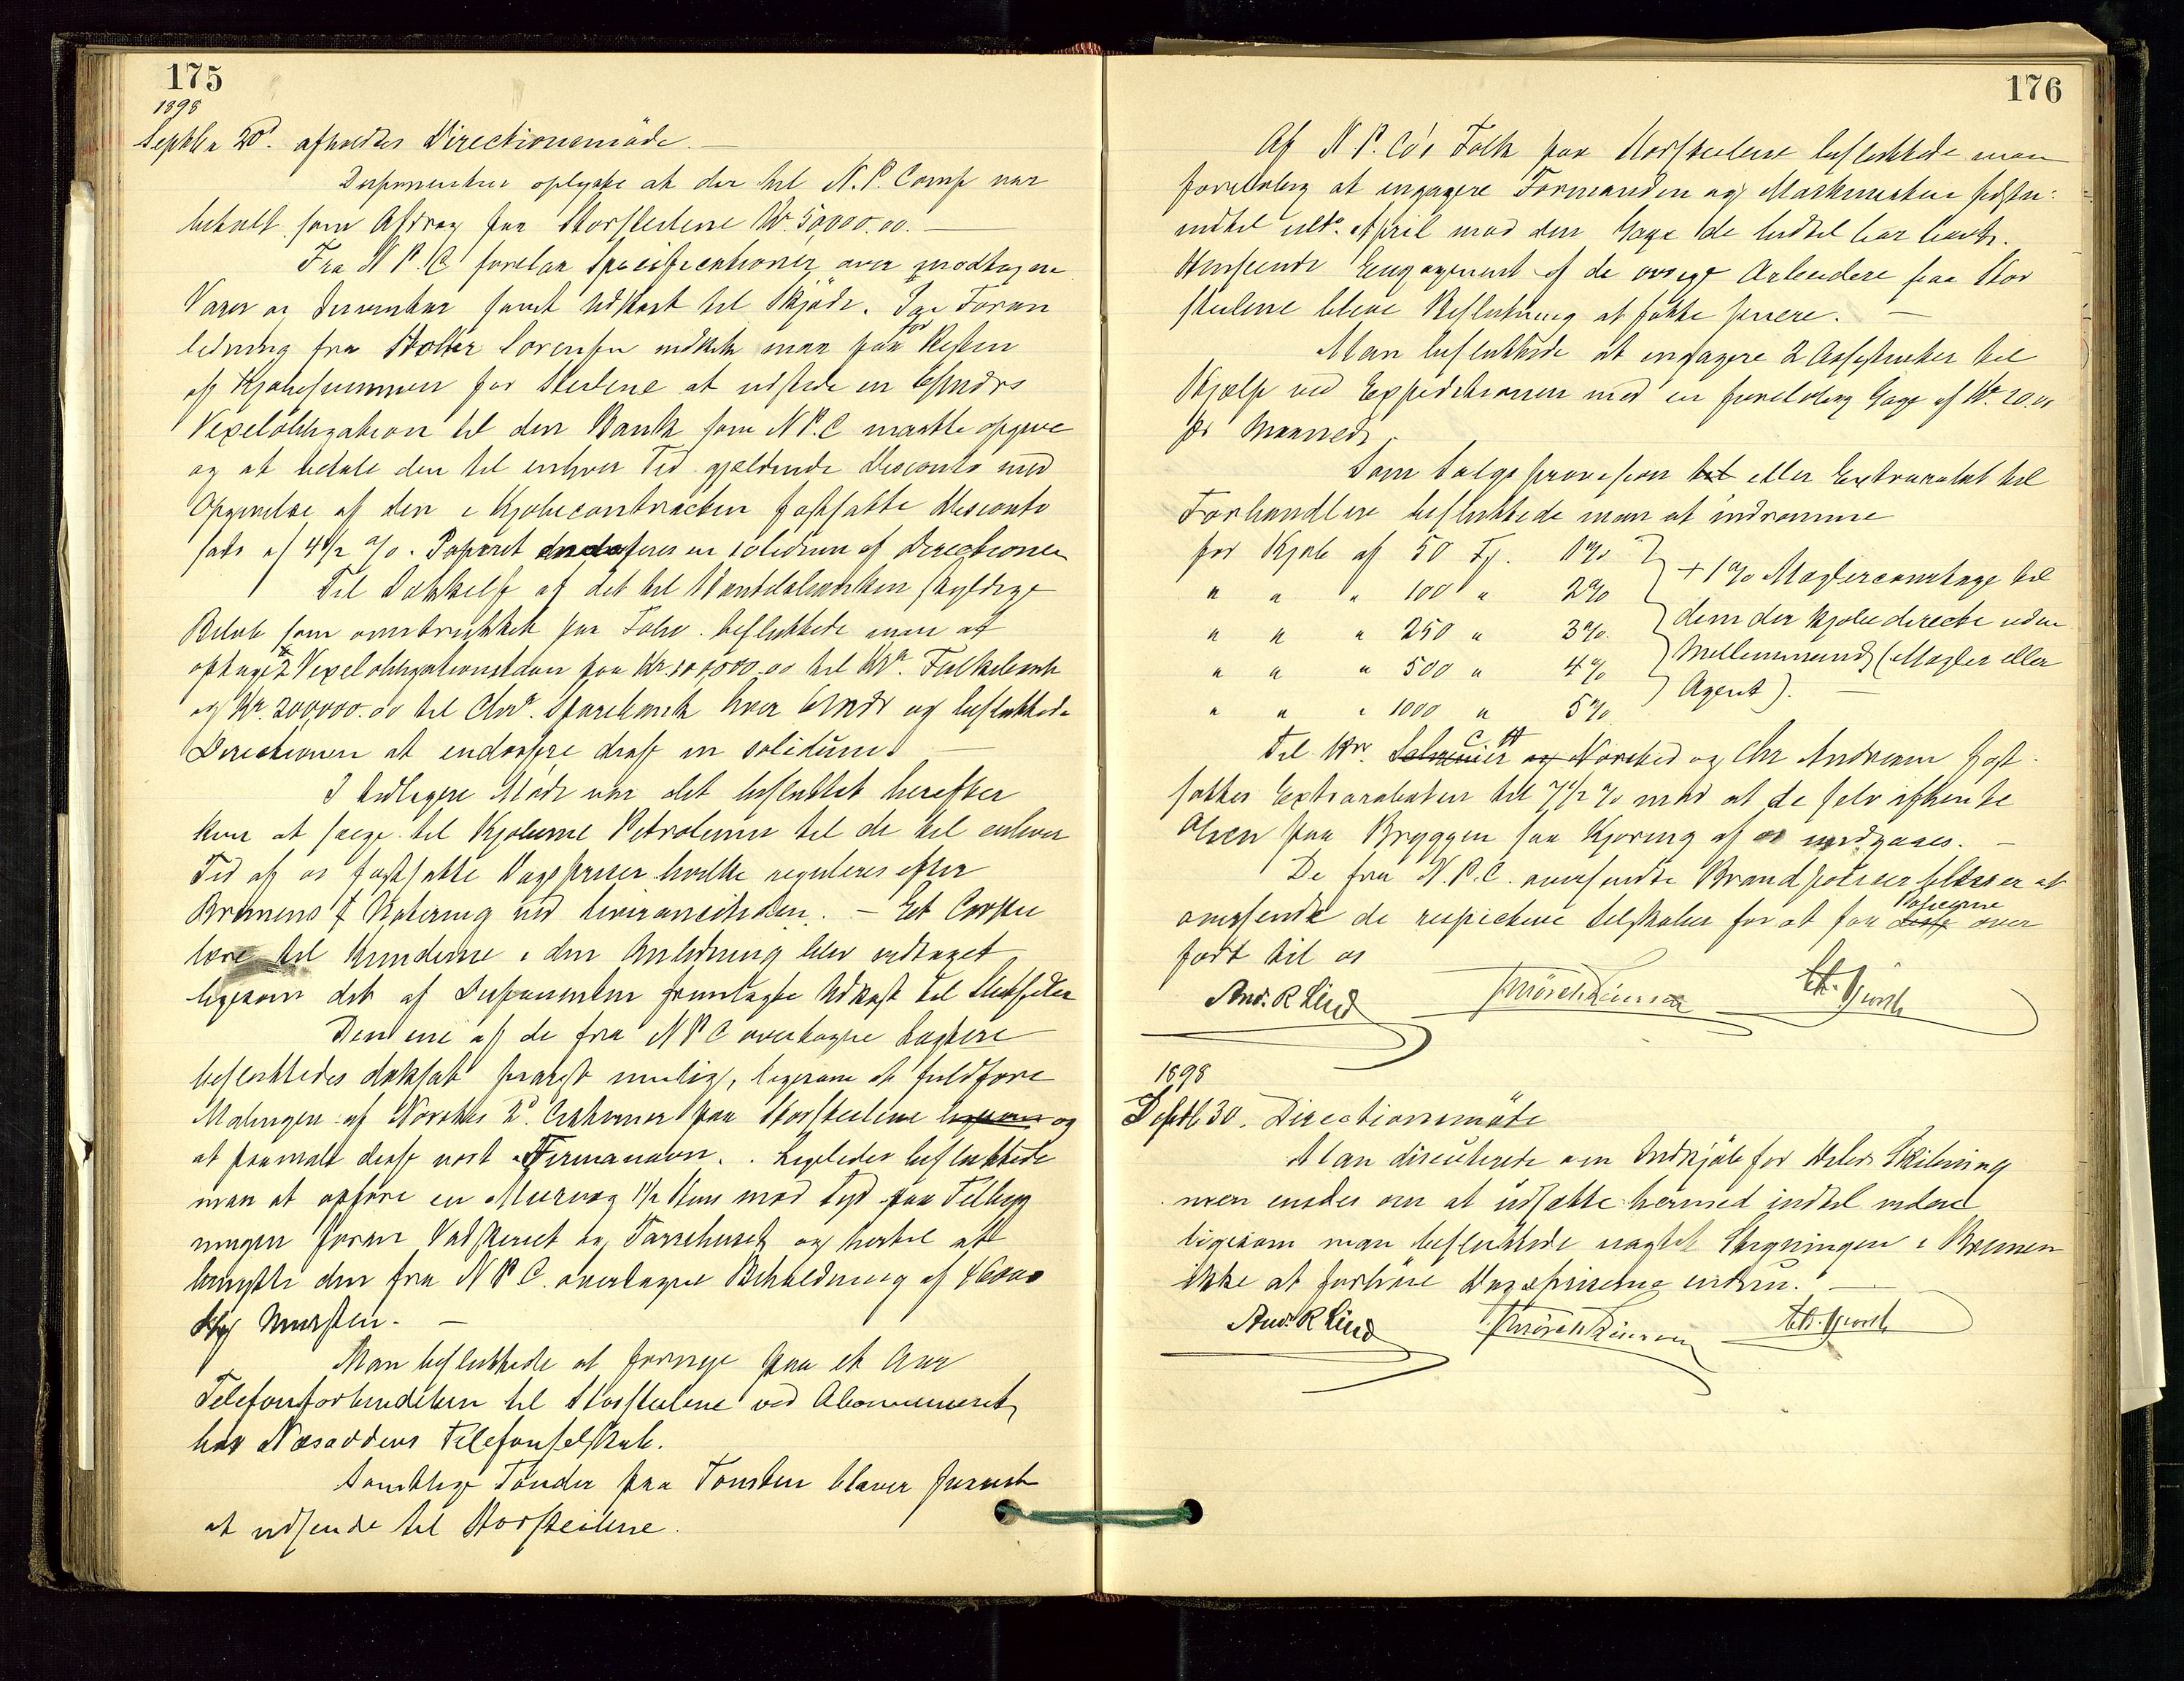 175
1898
Septbr 20d. afholdtes Directionsmöde. —
Disponenten oplyste at der til N. P. Comp var
betalt som Afdrag paa Storsteilene Kr. 50,000.00. —
Fra N P. C forelaa Specificationer over modtagne
Varer og Inventar samt Udkast til Skjöde. Paa Foran
ledning fra Holter Sørensen vedtok man for Resten
af Kjøbesummen for Steilene at udstede en 6 Mndrs
Vexelobligation til den Bank som N P. C maatte opgive
og at betale den til enhver Tid gjældende Disconto mod
Opgivelse af den i Kjøbecontracten fastsatte Disconto
sats af 4½ %. Papiret endosseres in solidum af Directionen
Til Dækkelse af det til Handelsbanken skyldige
Beløb som overtrukket paa Folio besluttede man at
optage 2 Vexelobligationslaan paa Kr. 100,000.00 til Kra. Folkebank
og Kr. 200,000.00 til Chra. Sparebank hver 6 Mndr og besluttede
Directionen at endossere disse in solidum. —
I tidligere Møde var det besluttet herefter
kun at sælge til Kjøberne Petroleum til de til enhver
Tid af os fastsatte Dagspriser hvilke reguleres efter
Bremens Notering ved Leverancetiden. — Et Cirku
lære til Kunderne i den Anledning blev vedtaget
ligesom det af Disponenten fremlagte Udkast til Slutsedler
Den ene af de fra N P C overtagne Lægtere
besluttedes solgt snarest mulig, ligesom at fuldføre
Malingen af Norskes 2d Cisterner paa Storsteilene ligesom og
at paamale disse vort Firmanavn. Ligeledes besluttede
man at opføre en Murvæg 1½ Sten med Lyd paa Tilbyg
ningen foran Vadskeriet og Tørrehuset og hertil at
benytte den fra N P C. overtagne Beholdning af 6000
Stk Mursten. —
Man besluttede at fornye paa et Aar
Telefonforbindelsen til Storsteilene ved Abonnement
hos Næsoddens Telefonselskab.
Samtlige Tønder paa Tomten bliver snarest
at udsende til Storsteilene.
176
Af N. P. Co's Folk paa Storsteilene besluttede man
foreløbig at engagere Formanden og Maskinisten
indtil ult. April mod den Gage de hidtil har havt.
Henseende Engagement af de øvrige Arbeidere paa Stor
steilene bleve Beslutning at fatte senere. —
Man besluttede at engagere 2 Assistenter til
Hjælp ved Expeditionen med en foreløbig Gage af Kr. 20.00
pr Maaned.
Som Salgsprovision til eller Extrarabat til
Forhandlere besluttede man at indrømme
for Kjøb af 50 Fj. 1%
" " " 100 " 2%
" " " 250 " 3%
" " " 500 " 4%
" " " 1000 " 5%
+ 1% Maglercourtage til
dem der kjøbe directe uden
Mellemmand (Magler eller
Agent). —
Til Hr. Schreiner og C. H Norshed og Chr Andresen fast
sattes Extrarabaten til 7½ % mod at de selv afhente
Olien paa Bryggen saa Kjøring af os undgaaes. —
De fra N. P. C. oversendte Brandpoliser bliver at
oversende de respective Selskaber for at faa disse Poliserne over
ført til os
And. R Lind
1898
Septb 30. Directionsmöte
Man discuterede om Indkjøb for Deres Skibning
men enedes om at udsætte hermed indtil videre
ligesom man besluttede uagtet Stigningen i Bremen
ikke at forhøie Dagspriserne endnu. —
And. R Lind